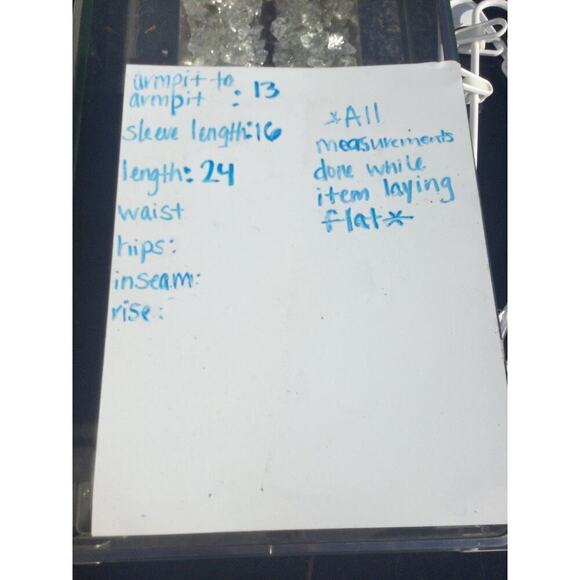 armpit to
armpit : 13
sleeve length: 16
length: 24
waist
hips:
inseam:
rise:
*All
measurements
done while
item laying
flat*